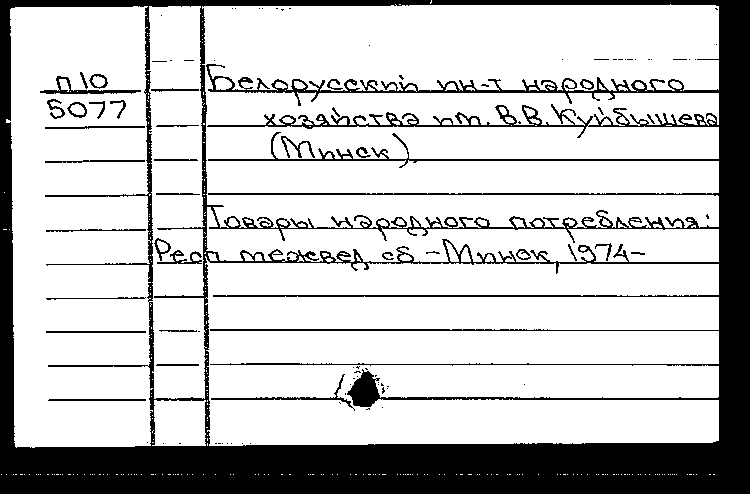 п10
5077
Белорусский ин-т народного
хозяйства им. В.В. Куйбышева
(Минск).
Товары народного потребления:
Респ. межвед. сб -Минск, 1974-